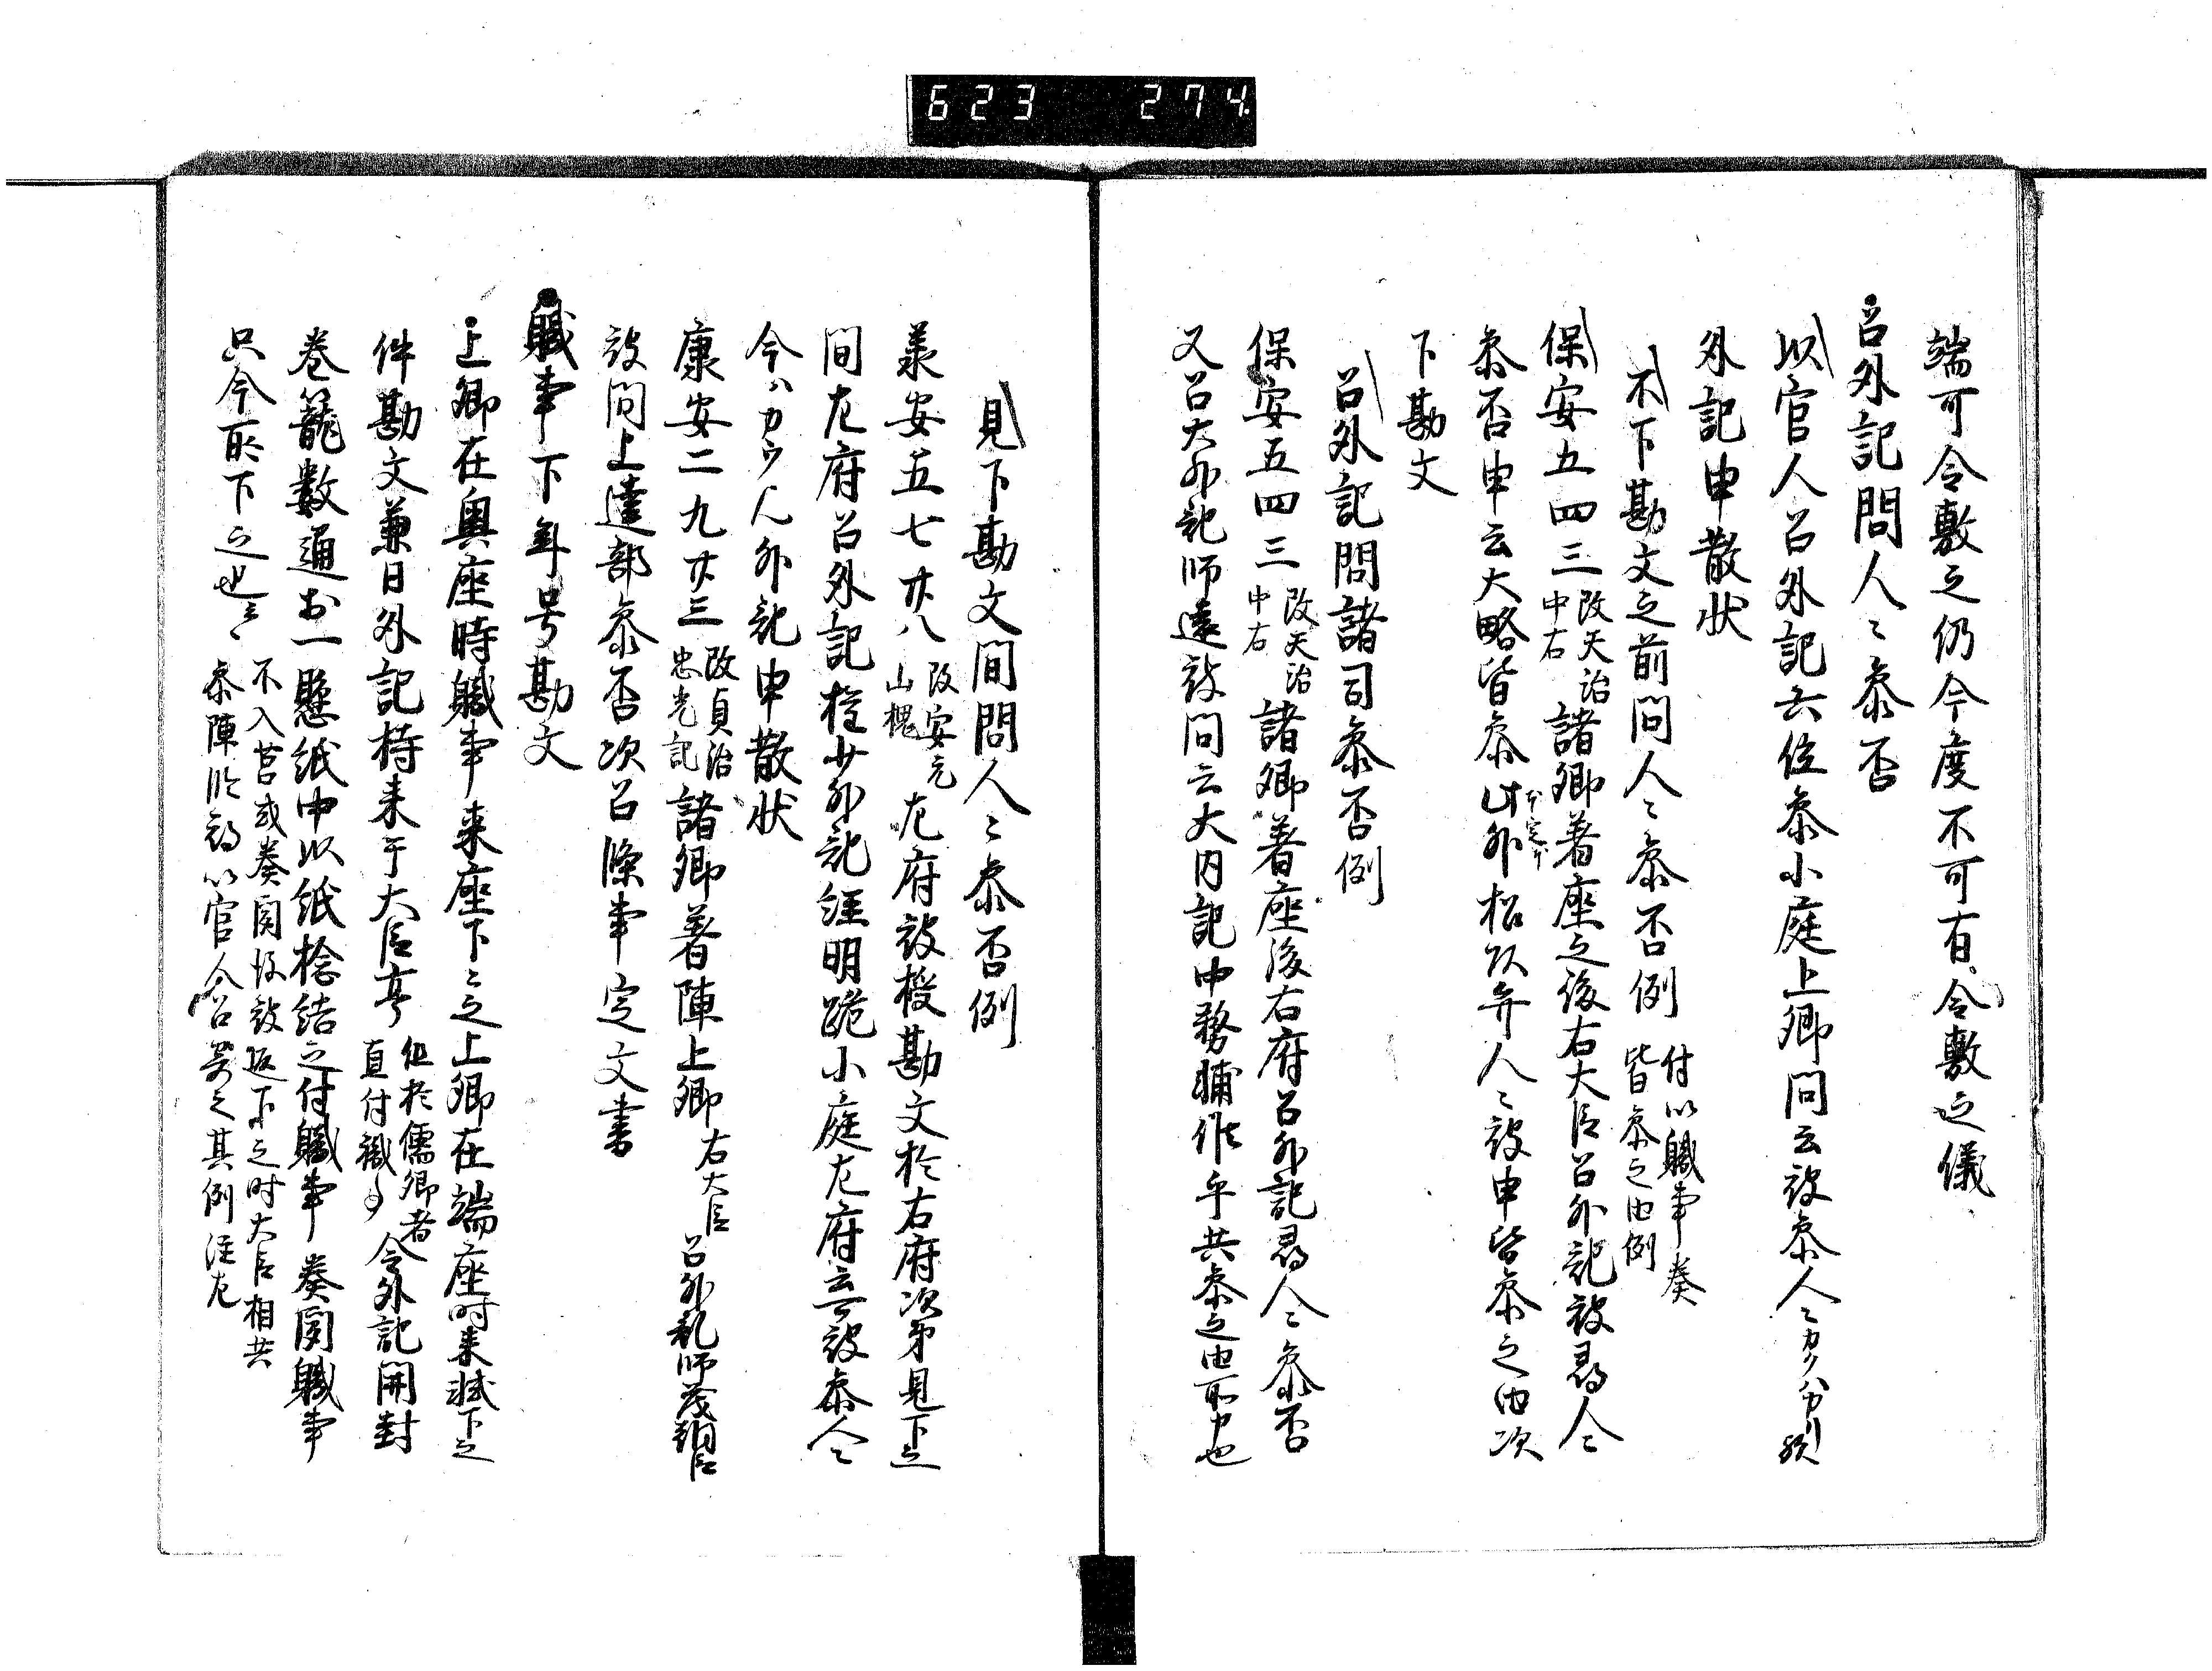 623 274
端可令敷之仍今度不可有令敷之儀
召外記問人々参否
以官人召外記六位参小庭上卿問云被参人々
外記申散状
不下勘文之前問人々参否例 付以職事奏
皆参之由例
保安五四三 改天治
中右
諸卿著座之後右大臣召外記被尋人々
参否申云大略皆参 此外
人々被申皆参之由次
下勘文
召外記問諸司参否例
保安五四三 改天治
中右
諸卿著座後右府召外記尋人々参否
又召大外記師遠被問云大内記中務輔候乎共参之由所申也
見下勘文間問人々参否例
承安五七廿八 改安元
山槐
左府被授勘文於右府次第見下之
間左府召外記権少外記経明跪小庭左府云被参人々
今ハカウ人外記申散状
康安二九廿三 改貞治
忠光記
諸卿著陣上卿 右大臣
召外記師茂朝臣
被問上達部参否次召條事定文書
職事下年号勘文
上卿在奥座時職事来座下々之上卿在端座时来軾下之
件勘文兼日外記持来于大臣亭 但於儒卿者
直付職事
令外記開封
巻籠数通於一懸紙中以紙捻結之付職事奏聞職事
只今所下之也云々 不入筥或奏聞後被返下之时大臣相共
参陣以官人召寄之其例注左